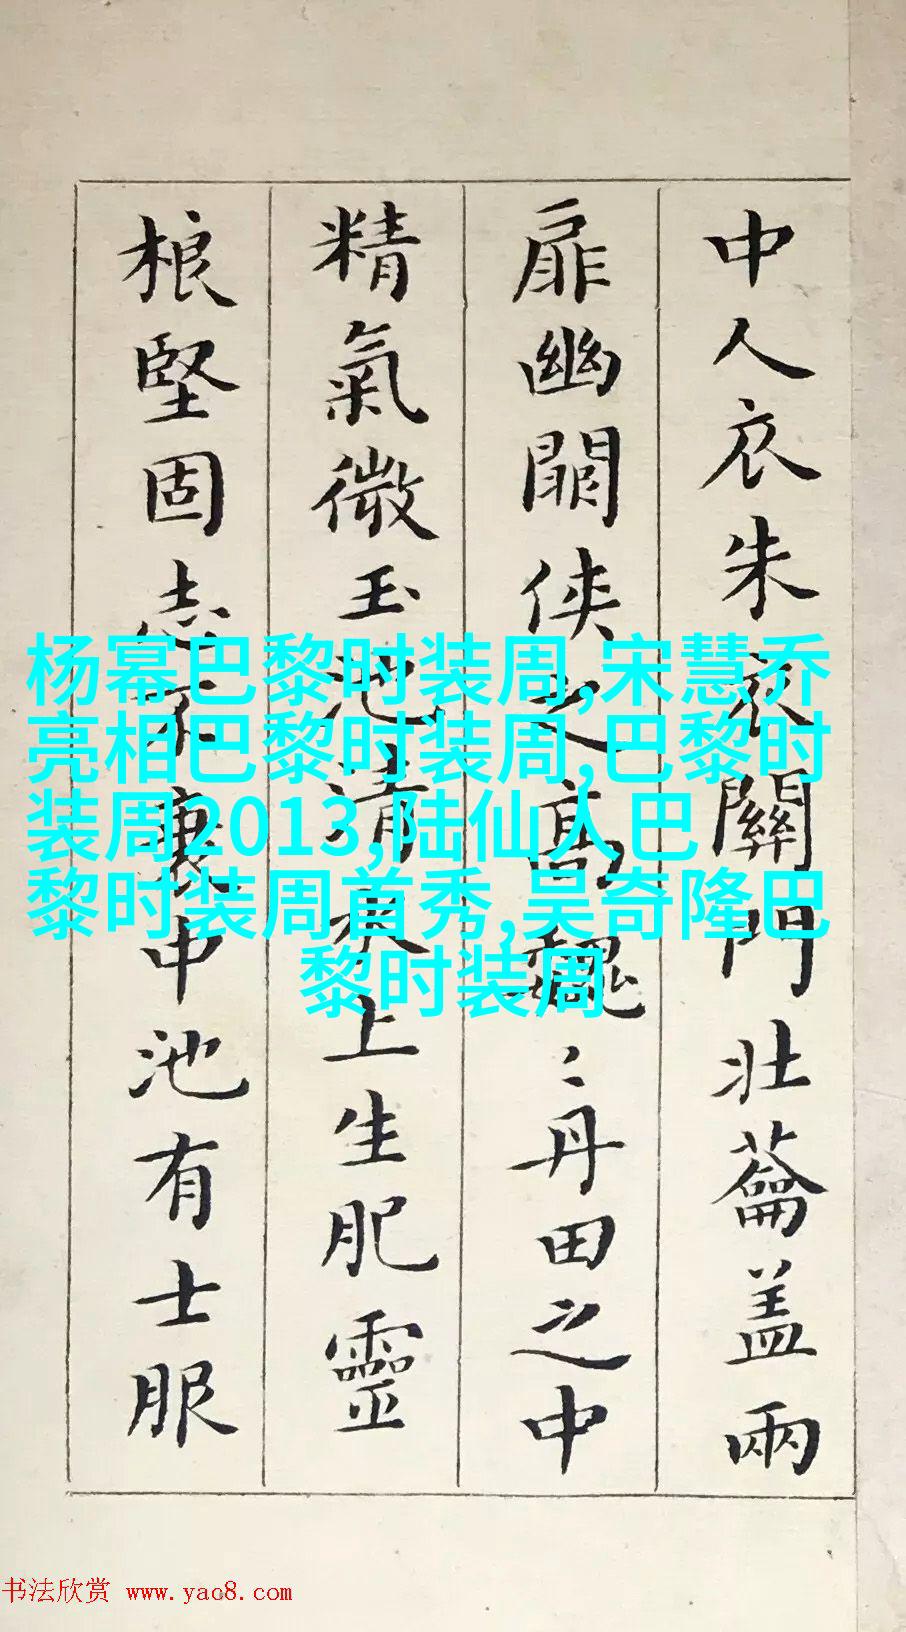 中人衣朱衣關門壯蘥盖兩
扉幽闕侠之高魏〻丹田之中
精氣微玉池清水上生肥靈
根堅固志不衰中池有士服
杨幂巴黎时装周,宋慧乔
亮相巴黎时装周,巴黎时
装周2013,陆仙人巴
黎时装周首秀,吴奇隆巴
黎时装周
书法欣赏 www.yac8.com